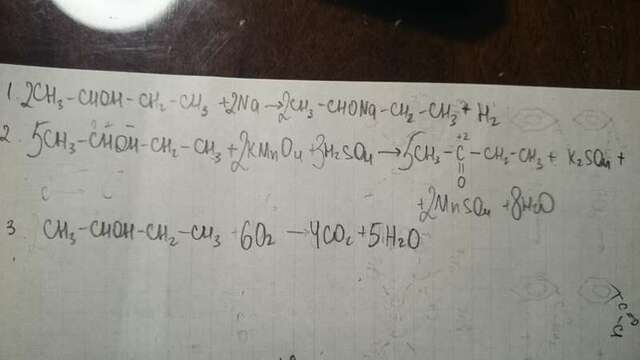 1. 2CH₃-CHOH-CH₂-CH₃ +2Na→2CH₃-CHONa-CH₂-CH₃+ H₂
2. 5CH₃-CHOH-CH₂-CH₃+2KMnO₄+3H₂SO₄→5CH₃-C-CH₂-CH₃+ K₂SO₄ +
+2
O
+2MnSO₄ +8H₂O
3. CH₃-CHOH-CH₂-CH₃ +6O₂ →4CO₂+5H₂O
C=O
-Cl